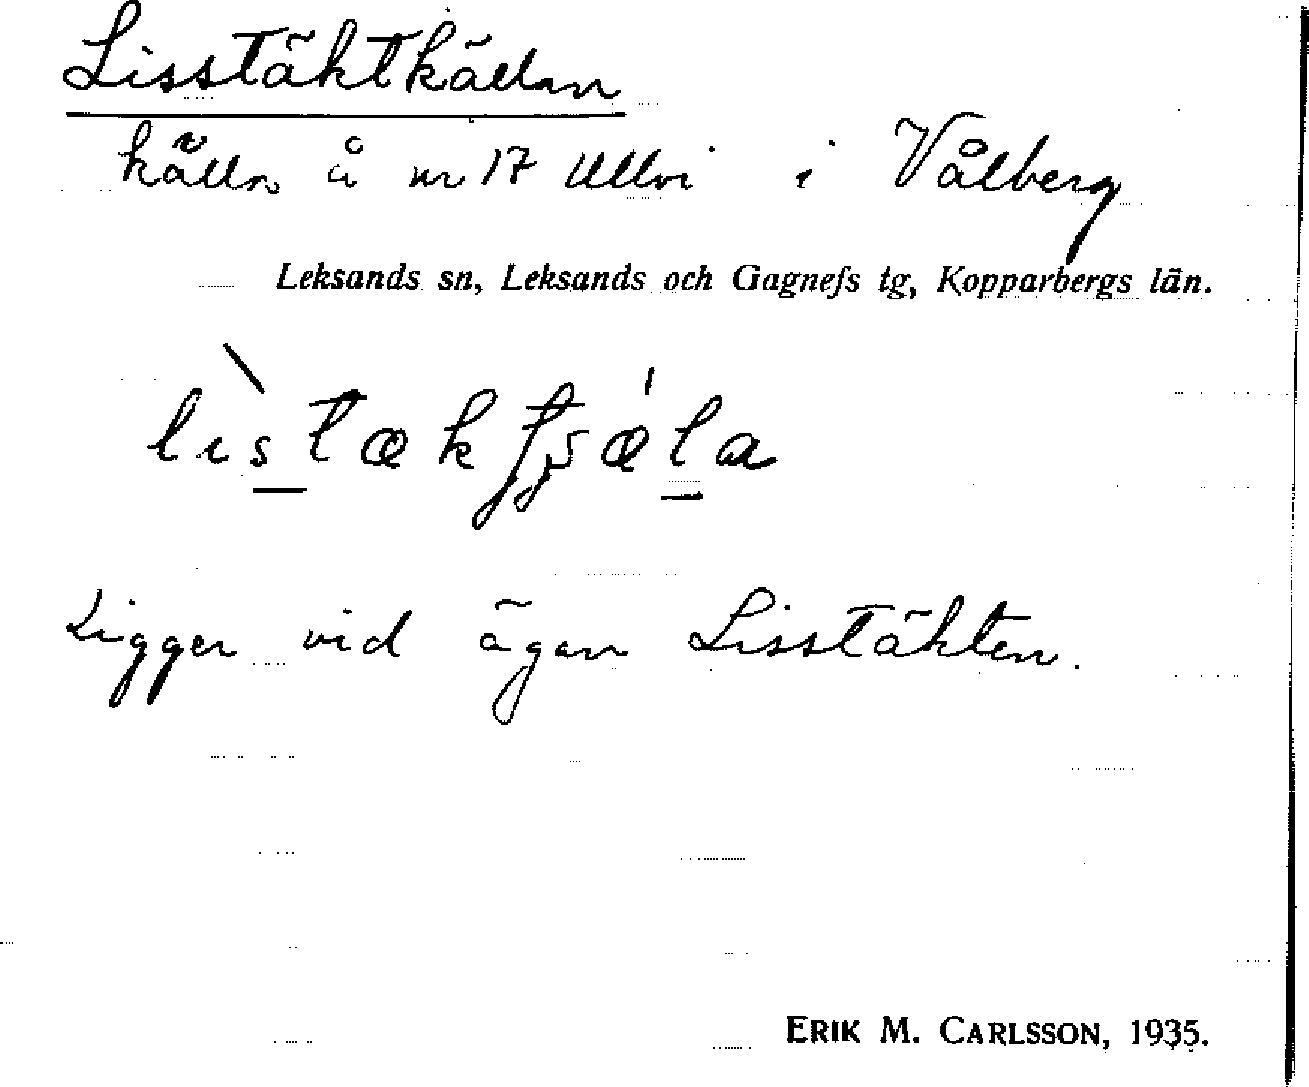 Lisstäktkällan
källa å nr 17 Ullvi i Vålberg
Leksands sn, Leksands och Gagnefs tg, Kopparbergs län.
Ligger vid ägan Lisstäkten.
ERIK M. CARLSSON, 1935.